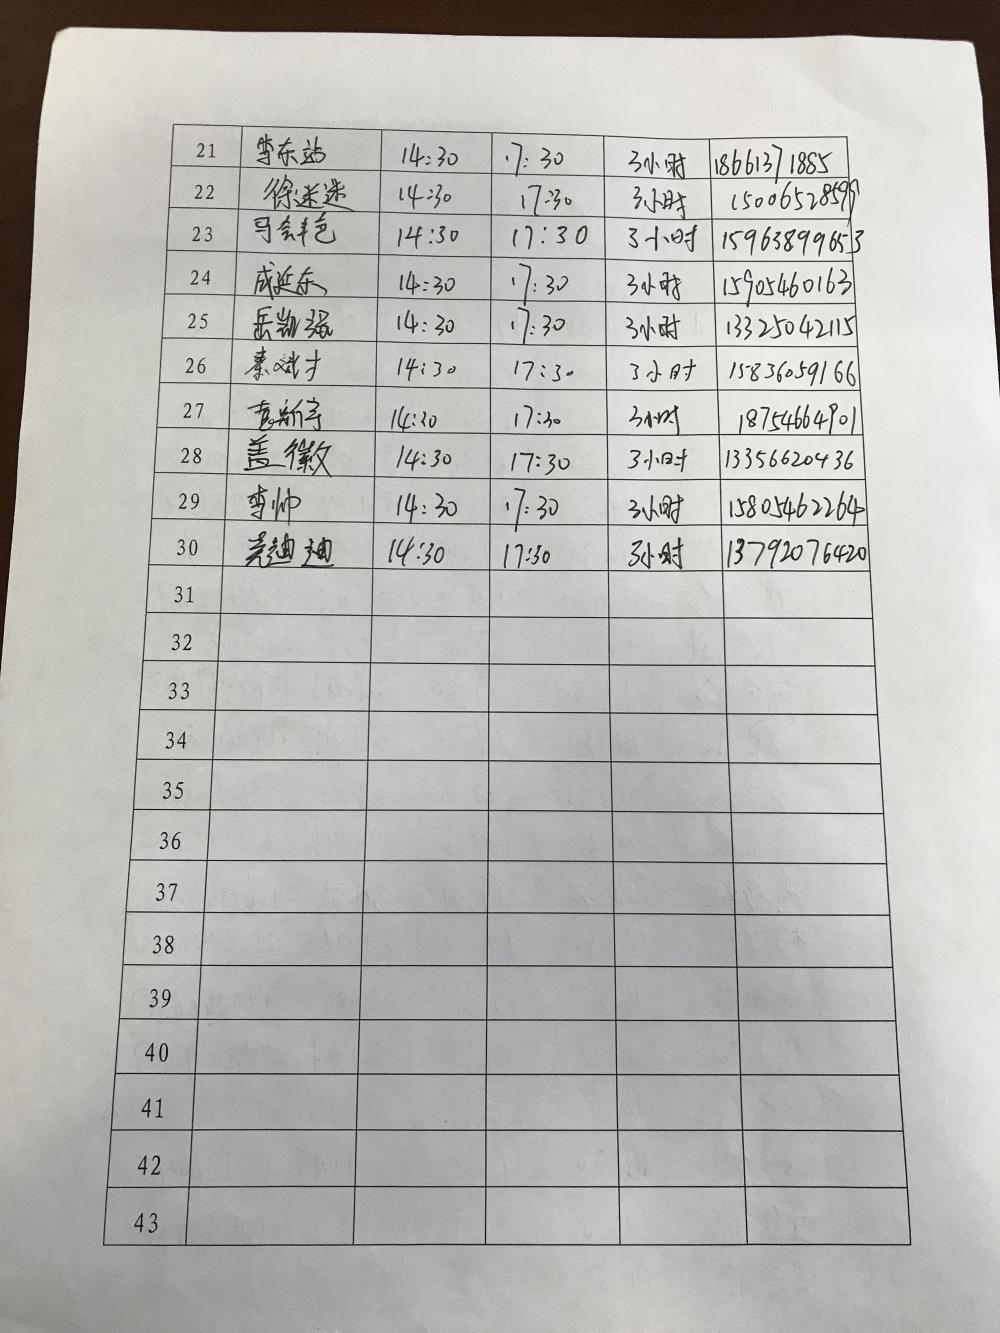 21 李东站 14:30 17:30 3小时 18661371885
22 徐迷迷 14:30 17:30 3小时 15006528599
23 14:30 17:30 3小时 15963899653
24 成延东 14:30 17:30 3小时 15905460163
25 岳凯强 14:30 17:30 3小时 13325042115
26 秦斌才 14:30 17:30 3小时 15836059166
27 袁新宇 14:30 17:30 3小时 18754664901
28 盖徽 14:30 17:30 3小时 13356620436
29 李帅 14:30 17:30 3小时 15805462264
30 迪迪 14:30 17:30 3小时 13792076420
31
32
33
34
35
36
37
38
39
40
41
42
43